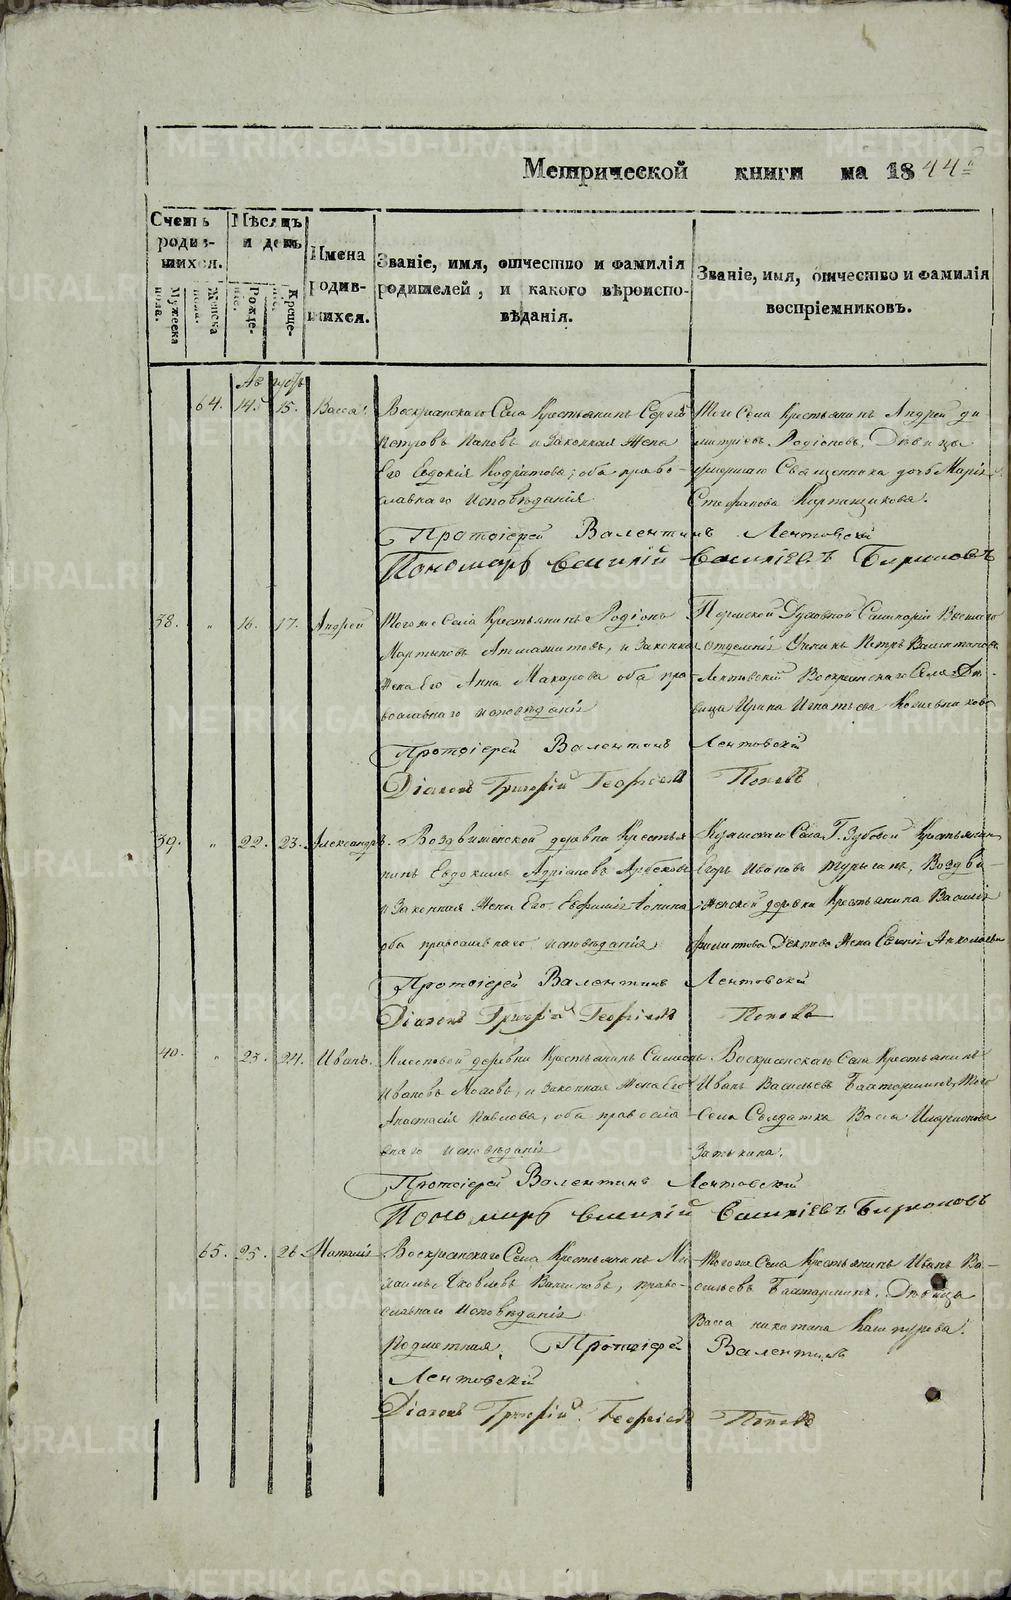 Метрической книги на 1844 г
Счетъ родив-
шихся.
Мужеска пола.
Женска пола.
Мѣсяцъ и день
Рожде-
нія.
Креще-
нія.
Имена
родив-
шихся.
Званіе, имя, отчество и фамилія
родителей, и какого вѣроиспо-
вѣданія.
Званіе, имя, отчество и фамилія
воспріемниковъ.
Августъ
64. 14. 15. Васса.
Воскресенскаго Села Крестьянинъ Сергій
Петровъ Поповъ и Законная Жена
Его Евдокія Кодратова, оба право-
славнаго Исповѣданія
Того Села Крестьянинъ Андрей Ди
митріевъ Родіоновъ, Дѣвица
умершаго Священника дочь Марія
Стефанова
Протоіерей Валентинъ Лентовскій
Пономарь Василій Васильевъ Бирюковъ
38. „ 16. 17. Андрей
Того же Села Крестьянинъ Родіонъ
Мартыновъ, и Законная
Жена Его Анна Макарова оба пра
вославнаго исповѣданія
Пермской Духовной Семинаріи Высшаго
отдѣленія Ученикъ Петръ Валентиновъ
Лентовскій Воскресенскаго Села Дѣ-
вица Ирина Игнатьева Кожевникова
Протоіерей Валентинъ Лентовскій
Діаконъ Григорій Георгіевъ Поповъ
39. „ 22. 23. Александръ.
Воздвиженской деревни Крестья
нинъ Евдокимъ Адріановъ
и Законная Жена Его Евфимія
оба православнаго исповѣданія
Села Г. Зубовой Крестьянин
Егоръ Ивановъ, Воздви-
женской деревни Крестьянина Василія
Филипова Жена
Протоіерей Валентинъ Лентовскій
Діаконъ Григорій Георгіевъ Поповъ
40. „ 23. 24. Иванъ.
деревни Крестьянинъ Симеонъ
Ивановъ, и Законная Жена Его
Анастасія Павлова, оба правосла
внаго исповѣданія
Воскресенскаго Села Крестьянинъ
Иванъ Васильевъ Бахтарминъ, того
Села Солдатка Васса Иларіонова
Затыкина.
Протоіерей Валентинъ Лентовскій
Пономарь Василій Васильевъ Бирюковъ
65. 25. 26 Наталія
Воскресенскаго Села Крестьянинъ Ми
хаилъ Яковлевъ, право-
славнаго Исповѣданія
Того же Села Крестьянинъ Иванъ Ва-
сильевъ Бахтарминъ. Дѣвица
Васса
Протоіерей Валентинъ
Лентовскій
Діаконъ Григорій Георгіевъ Поповъ
METRIKI.GASO-URAL.RU